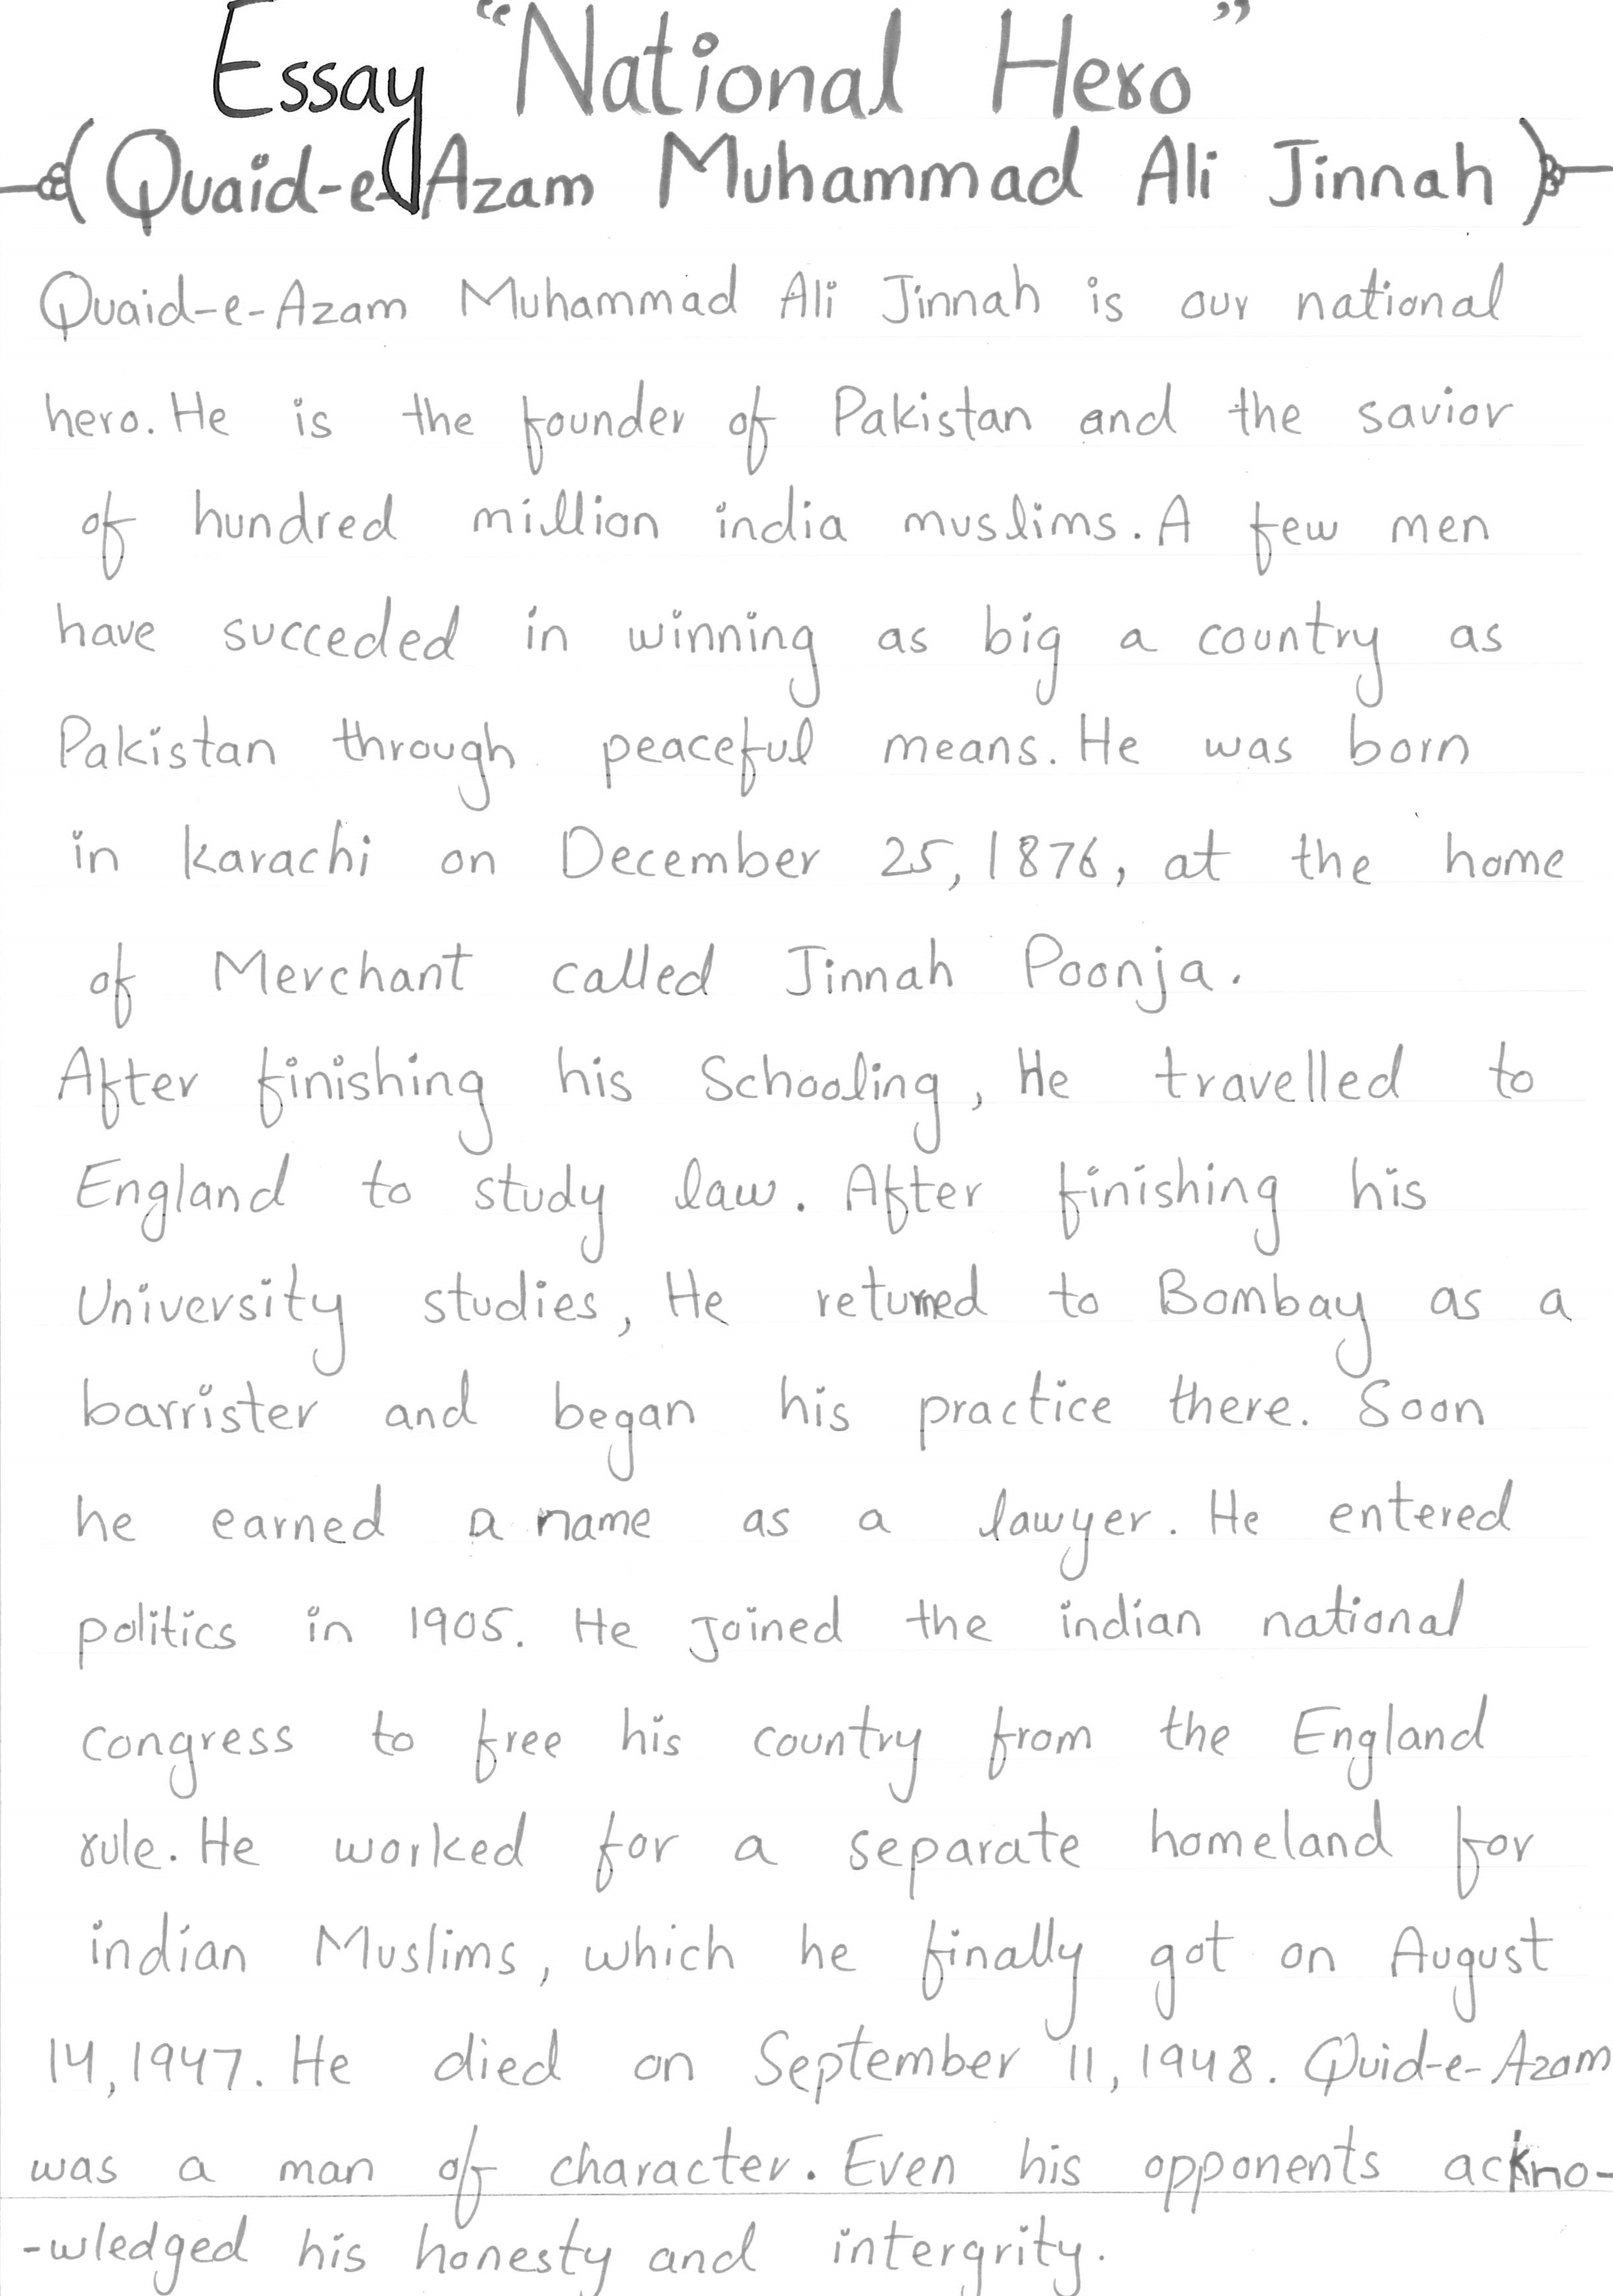 Essay "National Hero"
(Quaid-e-Azam Muhammad Ali Jinnah)
Quaid-e-Azam Muhammad Ali Jinnah is our national
hero. He is the founder of Pakistan and the savior
of hundred million india muslims. A few men
have succeded in winning as big a country as
Pakistan through peaceful means. He was born
in Karachi on December 25, 1876, at the home
of Merchant called Jinnah Poonja.
After finishing his Schooling, He travelled to
England to study law. After finishing his
University studies, He returned to Bombay as a
barrister and began his practice there. Soon
he earned a name as a lawyer. He entered
politics in 1905. He Joined the indian national
congress to free his country from the England
rule. He worked for a separate homeland for
indian Muslims, which he finally got on August
14, 1947. He died on September 11, 1948. Quid-e-Azam
was a man of character. Even his opponents ackno-
-wledged his honesty and intergrity.